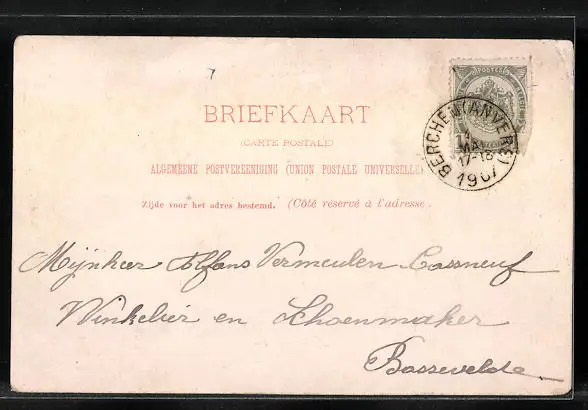 BRIEFKAART
(CARTE POSTALE)
ALGEMEENE POSTVEREENIGING (UNION POSTALE UNIVERSELLE)
Zijde voor het adres bestemd. (Côté réservé à l'adresse.
POSTES
BERCHEM (ANVERS)
17-18
1907
Mijnheer Alfons Vermeulen Cassneuf
Winkelier en Schoenmaker
Bassevelde